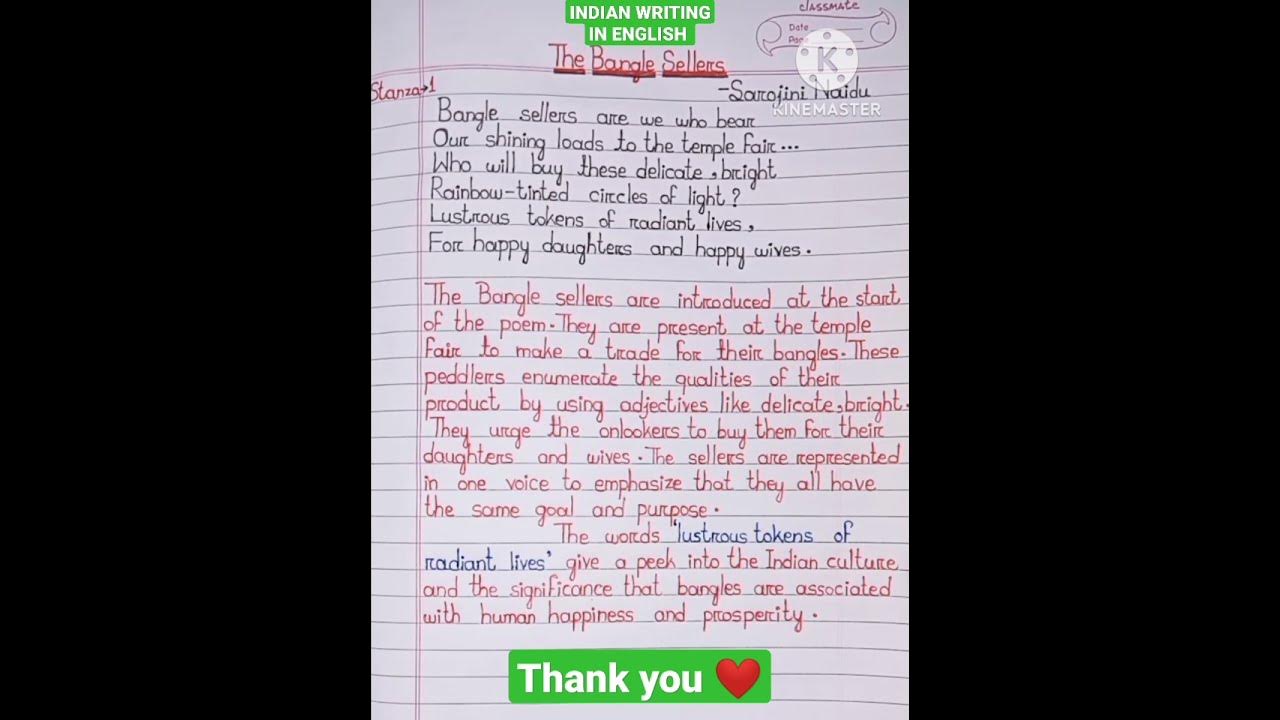 INDIAN WRITING
IN ENGLISH
classmate
Date
Page
The Bangle Sellers
KINEMASTER
Stanza→1
-Sarojini Naidu
Bangle sellers are we who bear
Our shining loads to the temple fair...
Who will buy these delicate, bright
Rainbow-tinted circles of light?
Lustrous tokens of radiant lives,
For happy daughters and happy wives.
The Bangle sellers are introduced at the start
of the poem. They are present at the temple
fair to make a trade for their bangles. These
peddlers enumerate the qualities of their
product by using adjectives like delicate, bright.
They urge the onlookers to buy them for their
daughters and wives. The sellers are represented
in one voice to emphasize that they all have
the same goal and purpose.
The words 'lustrous tokens of
radiant lives' give a peek into the Indian culture
and the significance that bangles are associated
with human happiness and prosperity.
Thank you ❤️